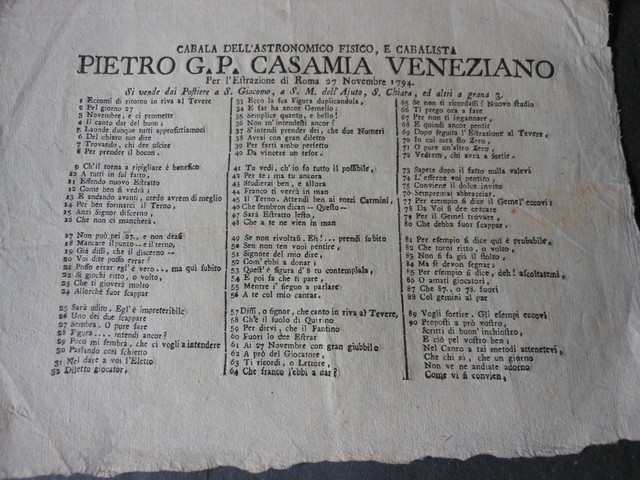 CABALA DELL'ASTRONOMICO FISICO, E CABALISTA
PIETRO G.P. CASAMIA VENEZIANO
Per l'Estrazione di Roma 27 Novembre 1794.
Si vende dai Postiere a S. Giacomo, a S. M. dell'Ajuto, S. Chiara, ed altri a grana 3.
1 Eccomi di ritorno in riva al Tevere
2 Pel giorno 27
3 Novembre, e ci promette
4 Il canto dar del buon
5 Laonde dunque tutti approfittiamoci
6 Del chiaro suo dire
7 Trovando, chi dee uscire
8 Per prender il bocon.
9 Ch'il torna a ripigliare è benefico
10 A tutti in sul fatto,
11 Essendo nuovo Estratto
12 Come ben si vedrà;
13 E andando avanti, credo avrem di meglio
14 Per ben formarci il Terno,
15 Anzi Signor discerno,
16 Che non ci mancherà.
17 Non può pei 27., e non deasi
18 Mancare il punto -- e il terno,
19 Già dissi, che il discerno --
20 Voi dite posso errar?
21 Posso errar egl'è vero..., ma quì subito
22 Si giochi ritto, o volto,
23 Che ti gioverà molto
24 Allorchè fuor scappar
25 Sarà udito. Egl'è impreteribile
26 Uno dei due scappare
27 Sembra. O pure fare
28 Figura.... intendi ancor?
29 Poco mi sembra, che ci vogli a intendere
30 Parlando così schietto
31 Nel dare a voi l'Eletto
32 Diletto giocator,
33 Ecco la sua Figura duplicandola,
34 E far ha ancor Gemello:
35 Semplice quanto, e bello!
36 Non m'intendesti ancor?
37 S'intendi prender dei, che due Numeri
38 Avrai con gran diletto
39 Per farti ambo perfetto
40 Da vincere un tesor.
41 Tu vedi, ch'io fo tutto il possibile,
42 Per te; ma tu ancora
43 Studierai ben, e allora
44 Franco ti verrà in man
45 Il Terno. Attendi ben ai rozzi Carmini,
46 Che sembron dican -- Questo --
47 Sarà Estratto lesto,
48 Che a te ne vien in man
49 Se non rivoltasi. Eh!... prendi subito
50 Sen non ten vuoi pentire,
51 Signore del mio dire,
52 Com'ebbi a donar;
53 Quest'è figura d'8 tu contemplala,
54 E poi fa che ti pare,
55 Mentre i' siegno a parlare
56 A te col mio cantar.
57 Dissi, o signor, che canto in riva al Tevere,
58 Ch'è il suolo di Quirino
59 Per dirvi, che il Fantino
60 Fuori lo dee Estrar
61 Ai 27 Novembre con gran giubbilo
62 A prò del Giocatore,
63 Ti ricordi, o Lettore,
64 Che franco l'ebbi a dar?
65 Se non ti ricordassi! Nuovo studio
66 Ti prego ora a fare
67 Per non ti ingannare,
68 E quindi ancor pentir
69 Dopo seguita l'Estrazione al Tevere,
70 In cui sarà sto Zero,
71 O pure un'altro Zero,
72 Vedrem, chi avrà a sortir.
73 Sapete dopo il fatto nulla valevi
74 L'esserne voi pentito;
75 Conviene il dolce invito
76 Sempremai abbracciar.
77 Per esempio si dice il Gemel! eccovi
78 Da Voi si dee cercare
79 Per il Gemel trovare,
80 Che debba fuor scappar.
81 Per esempio si dice quì è probabile,
82 Che torni ritto, o volto,
83 Non si fa già il stolto,
84 Ma si devon segnar;
85 Per esempio si dice, deh! ascoltatemi,
86 O amati giocatori,
87 Che 87., o 78. fuori
88 Col gemini al par
89 Vogli sortire. Gli esempi eccovi
90 Proposti a prò vostro,
Scritti di buon'inchiostro,
E ciò pel vostro ben;
Nel Canto a tai metodi attenetevi,
Che chi sà, che un giorno
Non ve ne andiate adorno
Come vi si convien,